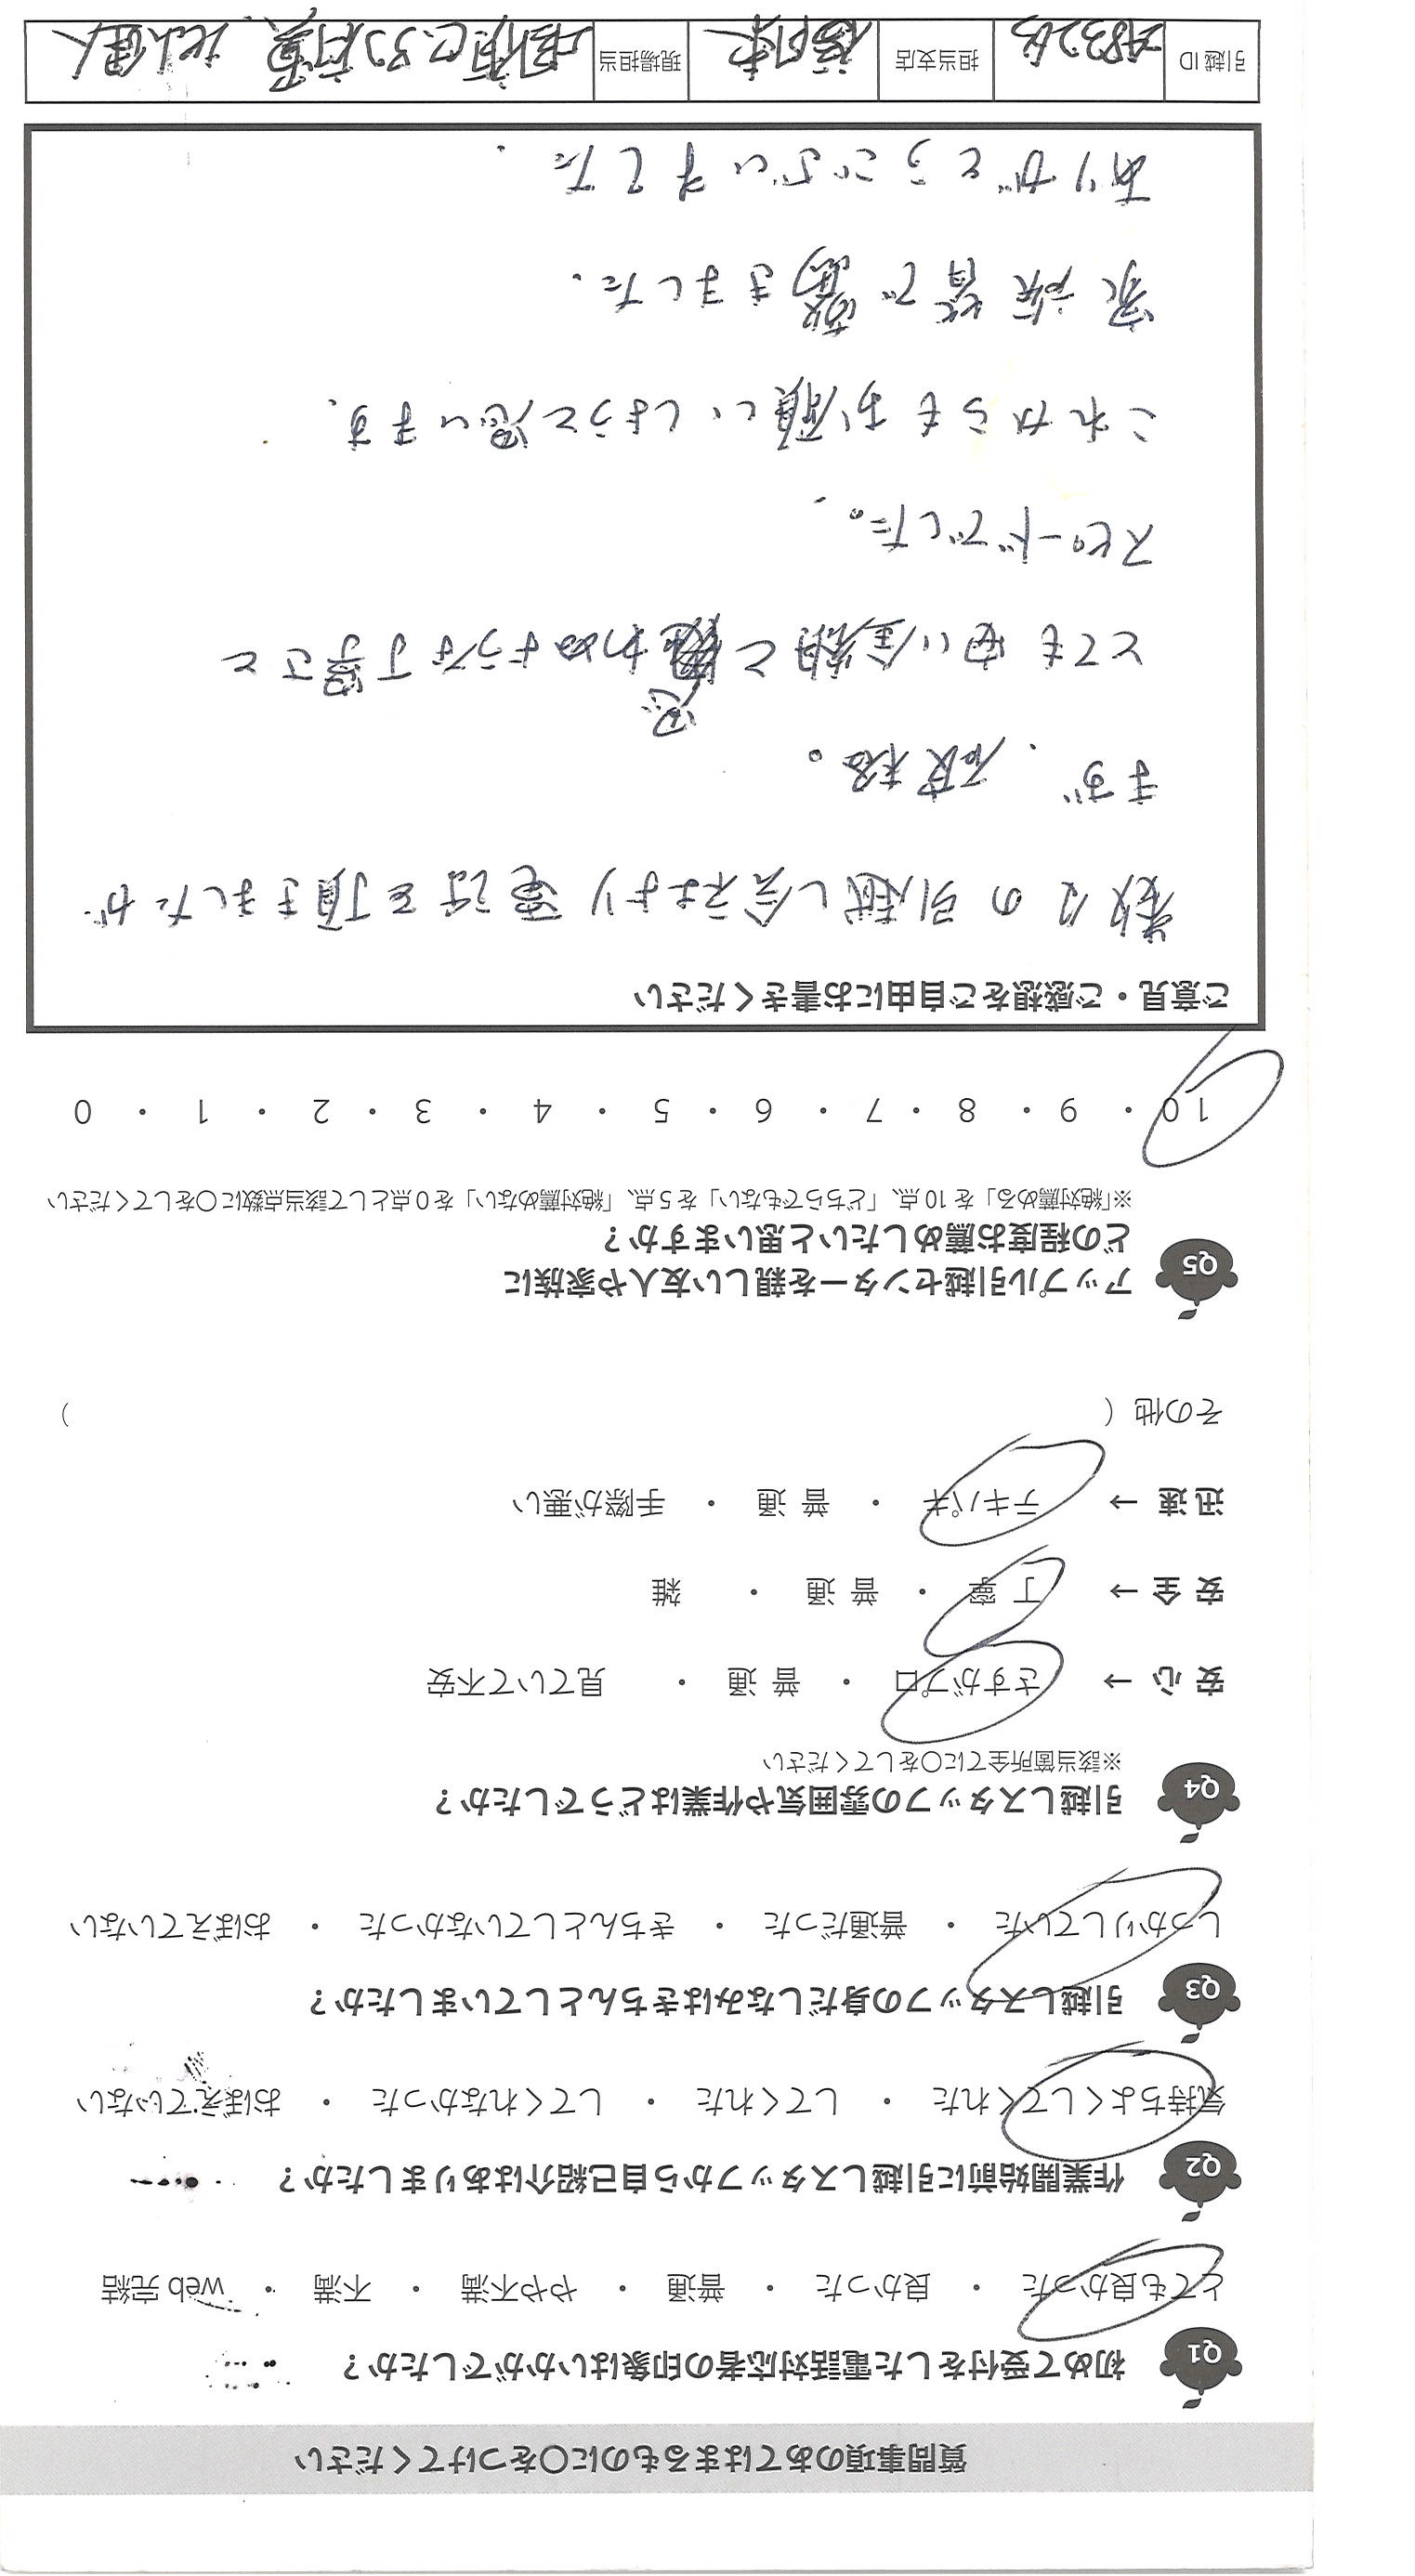 質問事項のあてはまるものに〇をつけてください
Q1 初めて受付をした電話対応者の印象はいかがでしたか？
とても良かった ・ 良かった ・ 普通 ・ やや不満 ・ 不満 ・ web 完結
Q2 作業開始前に引越しスタッフから自己紹介はありましたか？
気持ちよくしてくれた ・ してくれた ・ してくれなかった ・ おぼえていない
Q3 引越しスタッフの身だしなみはきちんとしていましたか？
しっかりしていた ・ 普通だった ・ きちんとしていなかった ・ おぼえていない
Q4 引越しスタッフの雰囲気や作業はどうでしたか？
※該当箇所全てに〇をしてください
安 心 → さすがプロ ・ 普 通 ・ 見ていて不安
安 全 → 丁 寧 ・ 普 通 ・ 雑
迅 速 → テキパキ ・ 普 通 ・ 手際が悪い
その他（ ）
Q5 アップル引越センターを親しい友人や家族に
どの程度お薦めしたいと思いますか？
※「絶対薦める」を 10 点、「どちらでもない」を 5 点、「絶対薦めない」を 0 点として該当点数に〇をしてください
10 ・ 9 ・ 8 ・ 7 ・ 6 ・ 5 ・ 4 ・ 3 ・ 2 ・ 1 ・ 0
ご意見・ご感想をご自由にお書きください
数々の引越し会社より電話を頂きましたが
まず、破格。
とても安い金額と思わぬような丁寧さと
スピードでした。
これからもお願いしようと思います。
家族皆で驚きました。
ありがとうございました。
引越 ID 担当支店 現場担当